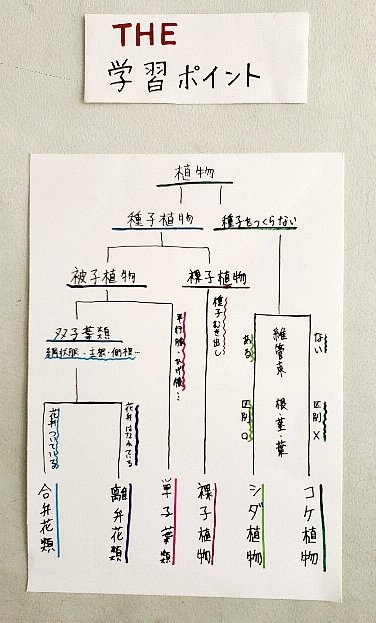 THE
学習ポイント
植物
種子植物
種子をつくらない
被子植物
裸子植物
双子葉類
網状脈・主根・側根…
平行脈・ひげ根…
種子むき出し
ある
維管束
ない
区別○
根・茎・葉
区別×
花弁ついている
花弁はなれている
合弁花類
離弁花類
単子葉類
裸子植物
シダ植物
コケ植物